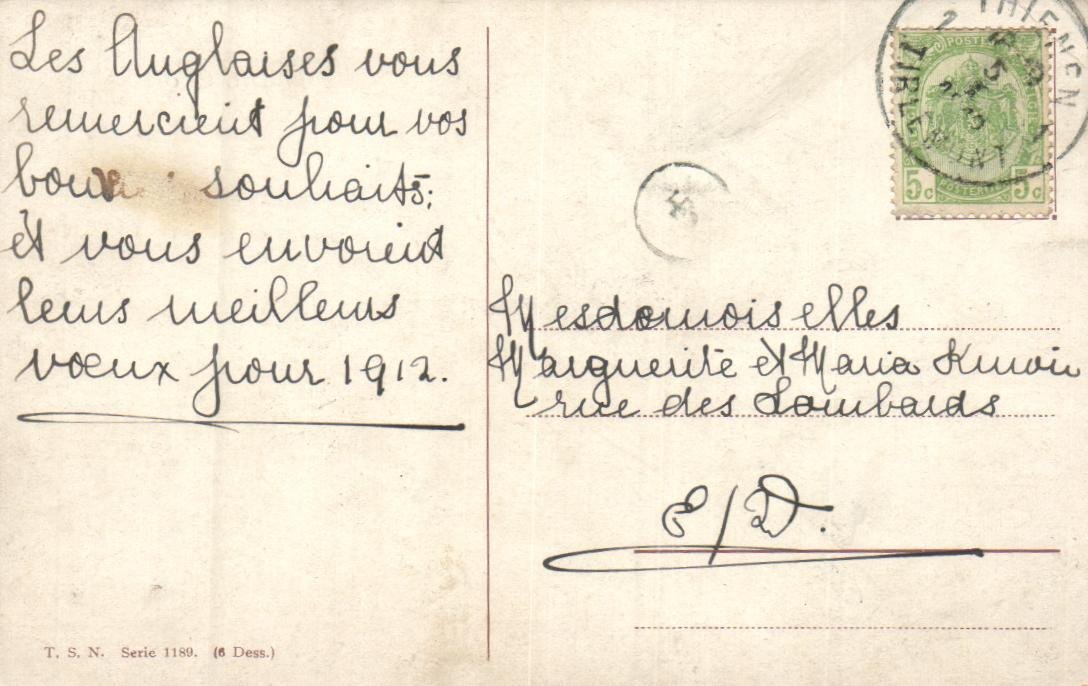 Les Anglaises vous
remercient pour vos
bons souhaits;
et vous envoient
leurs meilleurs
vœux pour 1912.
THIENEN
TIRLEMONT
POSTERIJEN
5c 5c
Mesdemoiselles
Marguerite et Maria
rue des Lombards
E/V.
T. S. N. Serie 1189. (6 Dess.)